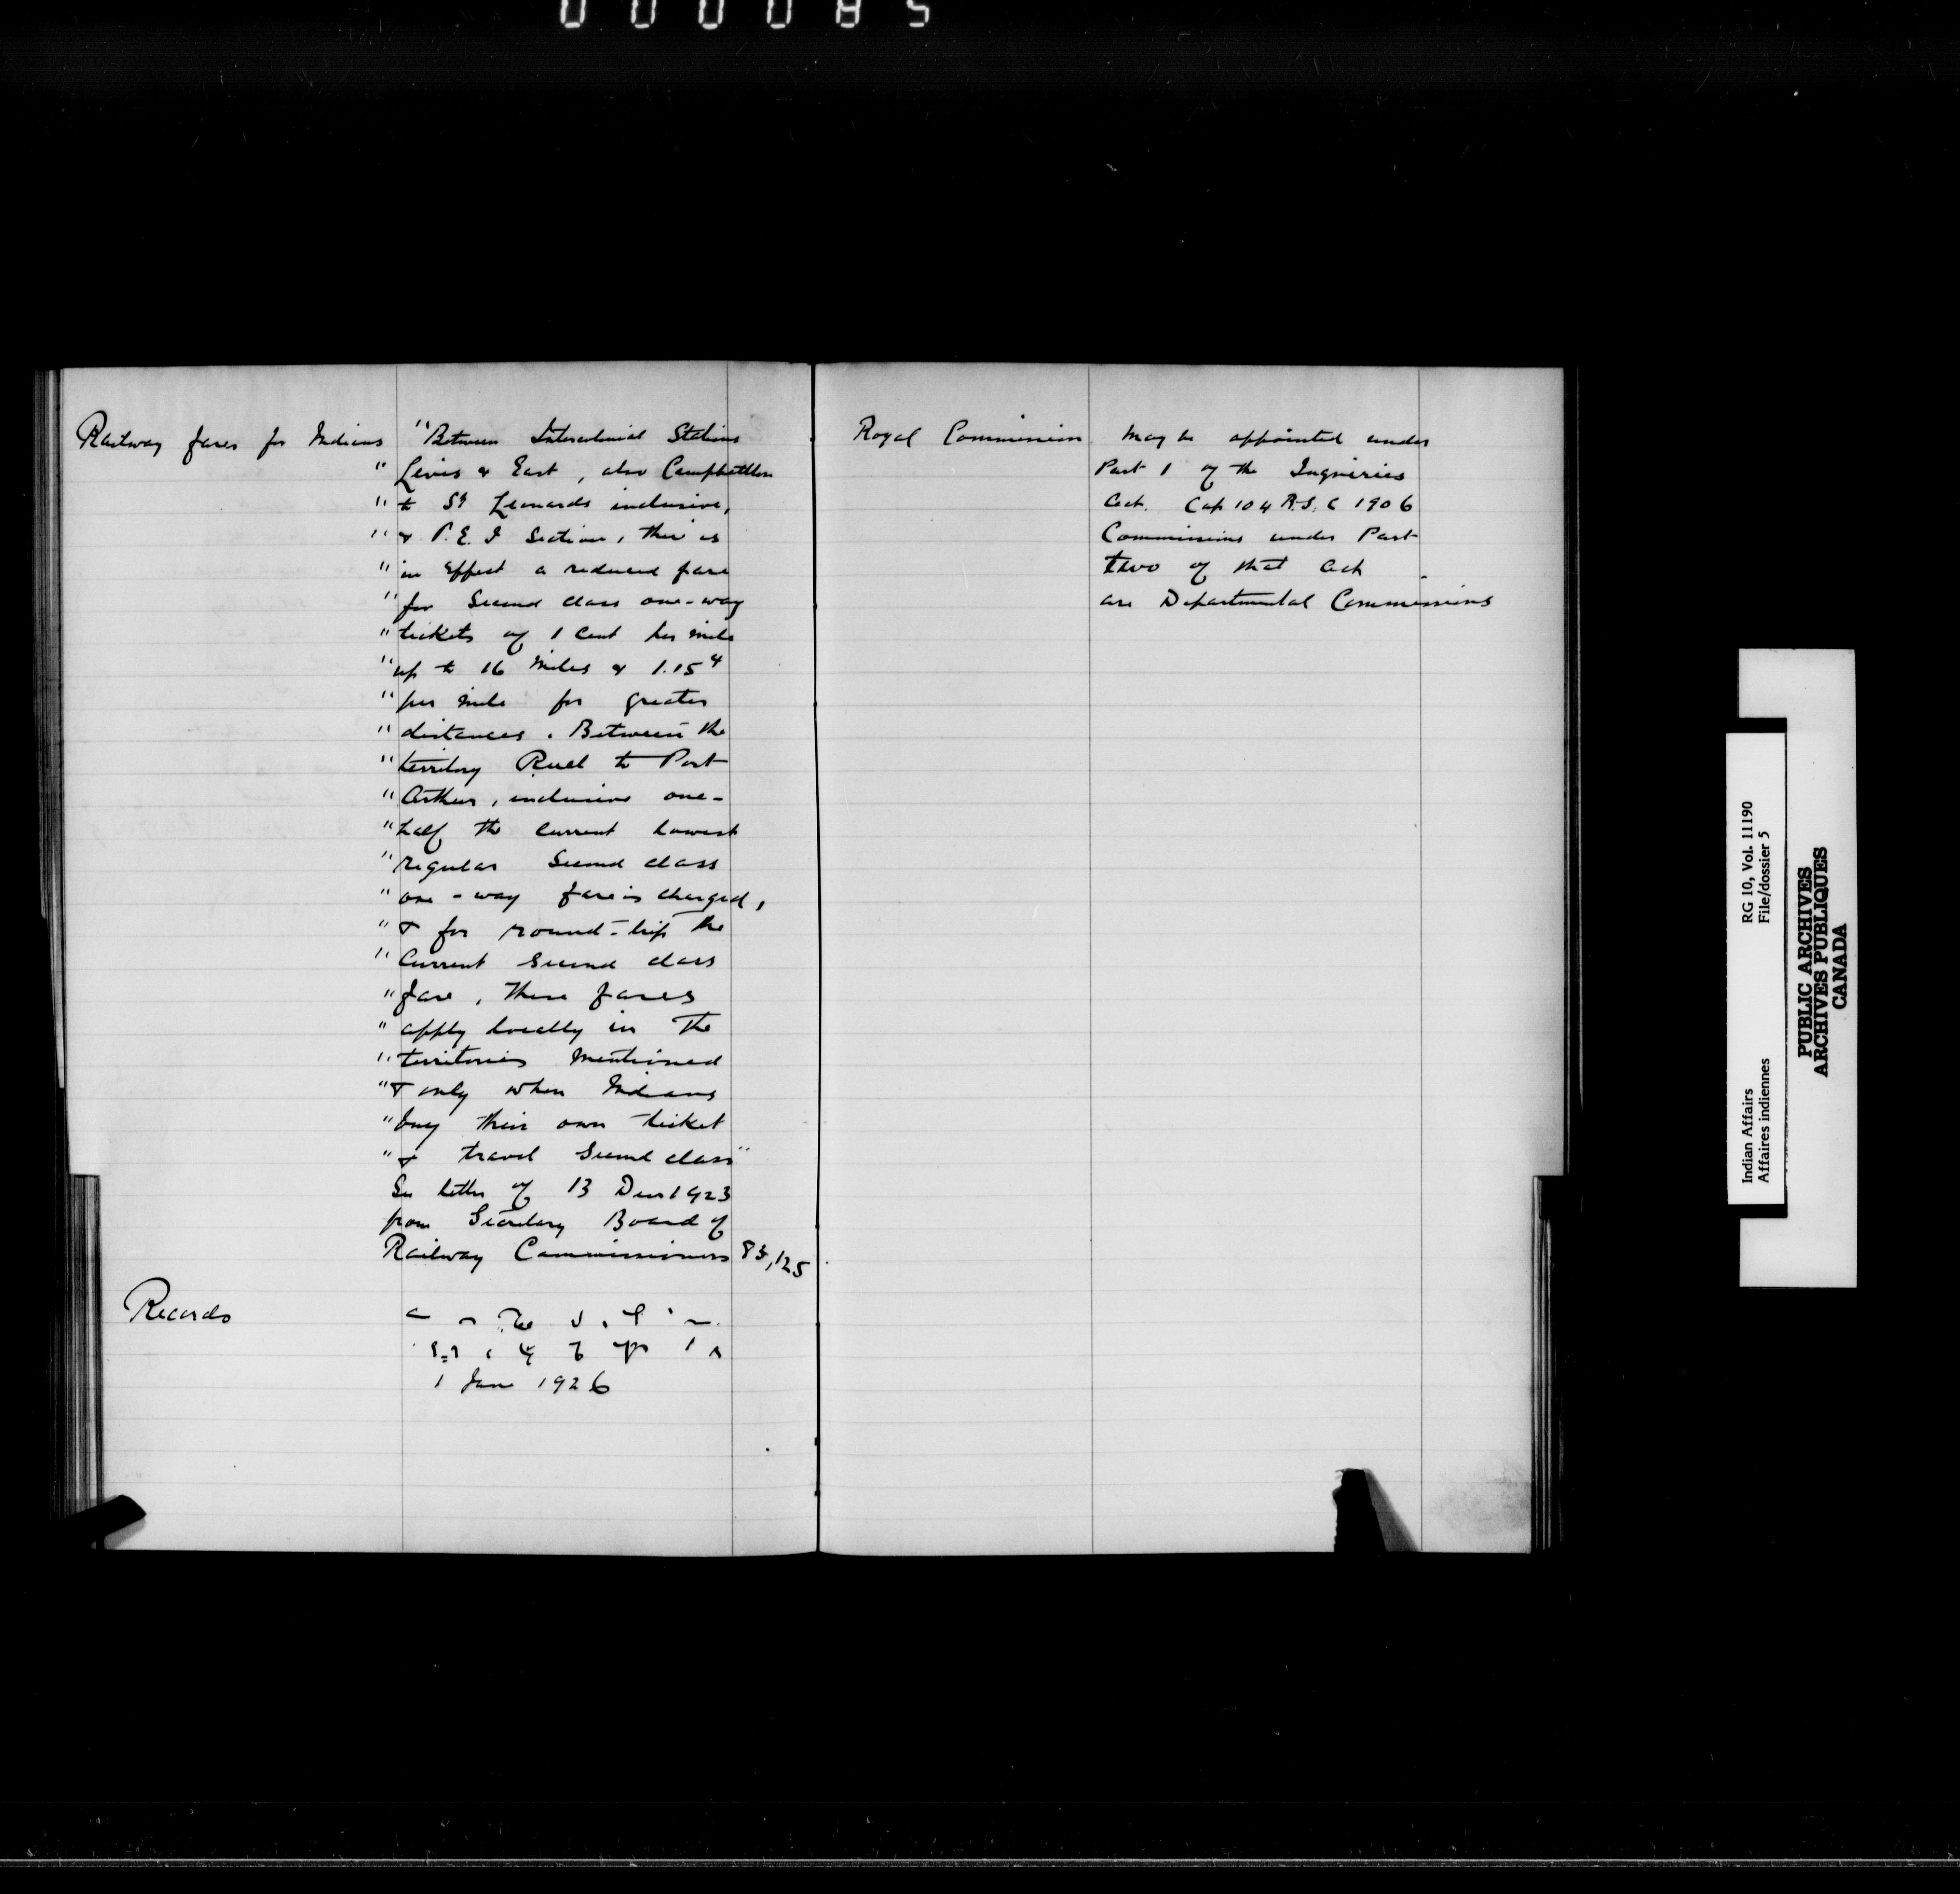 000085
Railway fares for Indians
"Between Intercolonial Stations
"Levis & East, also Campbellton
"to St Leonards inclusive,
"& P.E.I Section, there is
"in Effect a reduced fare
"for Second class one-way
"tickets of 1 Cent per mile
"up to 16 Miles & 1.15¢
"per mile for greater
"distances. Between the
"territory Ruel to Port
"Arthur, inclusive one-
"half the current lowest
"regular Second class
"one-way fare is charged,
"& for round-trip the
"Current Second class
"fare, These fares
"apply locally in the
"territories Mentioned
"& only when Indians
"buy their own ticket
"& travel Second class"
See letter of 13 Decr 1923
from Secretary Board of
Railway Commissioners 85,125
Records
1 June 1926
Royal Commission
May be appointed under
Part 1 of the Inquiries
Act. Cap 104 R.S.C 1906
Commissions under Part
two of that Act
are Departmental Commissions
Indian Affairs RG 10, Vol. 11190
Affaires indiennes File/dossier 5
PUBLIC ARCHIVES
ARCHIVES PUBLIQUES
CANADA